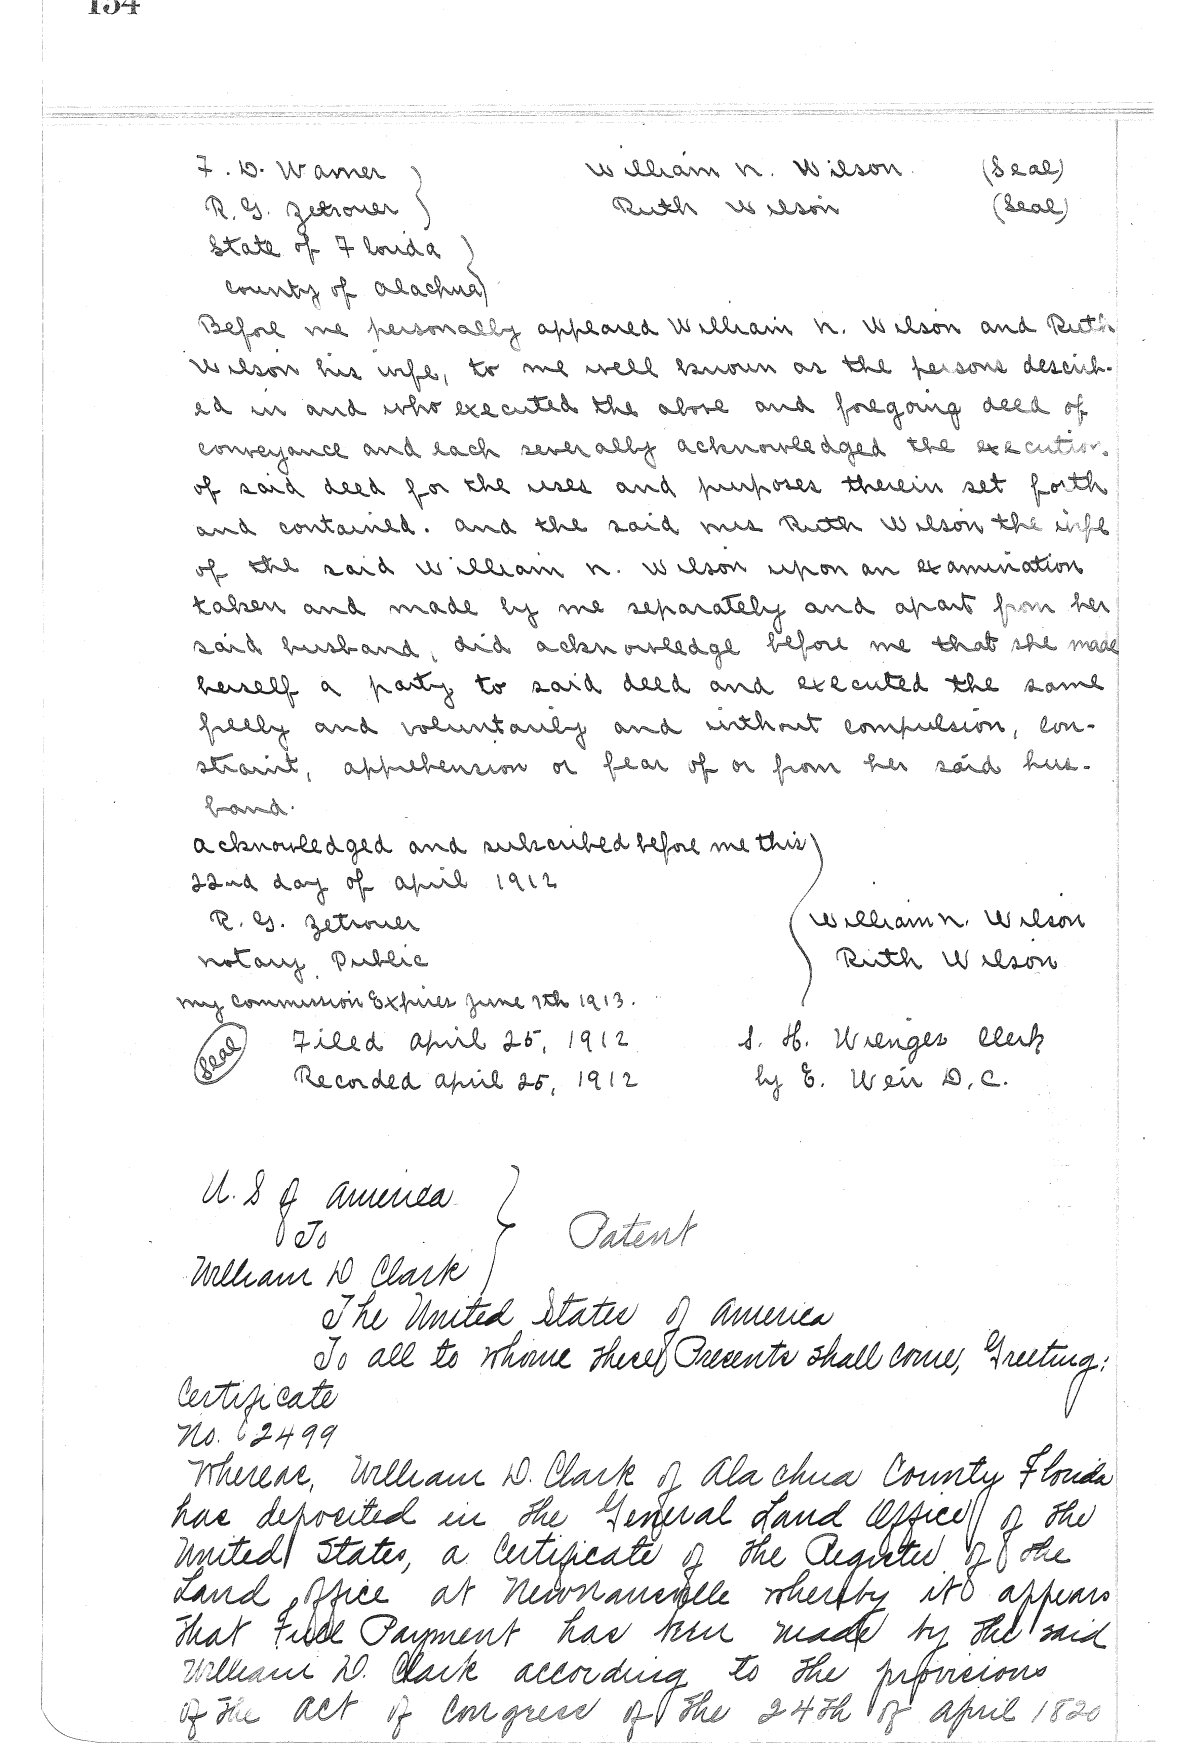 154
F. D. Warner } William N. Wilson (Seal)
R. G. Zetrouer } Ruth Wilson (Seal)
State of Florida }
County of Alachua }
Before me personally appeared William N. Wilson and Ruth
Wilson his wife, to me well known as the persons describ-
ed in and who executed the above and foregoing deed of
conveyance and each severally acknowledged the execution
of said deed for the uses and purposes therein set forth
and contained. And the said Mrs Ruth Wilson the wife
of the said William N. Wilson upon an examination
taken and made by me separately and apart from her
said husband, did acknowledge before me that she made
herself a party to said deed and executed the same
freely and voluntarily and without compulsion, con-
straint, apprehension or fear of or from her said hus-
band.
Acknowledged and subscribed before me this
22nd day of April 1912
R. G. Zetrouer William N. Wilson
Notary Public Ruth Wilson
My Commission Expires June 7th 1913.
(Seal) Filed April 25, 1912 S. H. Wienges Clerk
Recorded April 25, 1912 by E. Weir D.C.
U. S of America
To } Patent
William D Clark
The United States of America
To all to whome these Presents shall come, Greeting:
Certificate
No. 2499
Whereas, William D. Clark of Alachua County Florida
has deposited in the General Land Office of the
United States, a Certificate of the Register of the
Land office at Newnansville whereby it appears
that Full Payment has been made by the said
William D. Clark according to the provisions
of the Act of Congress of the 24th of April 1820